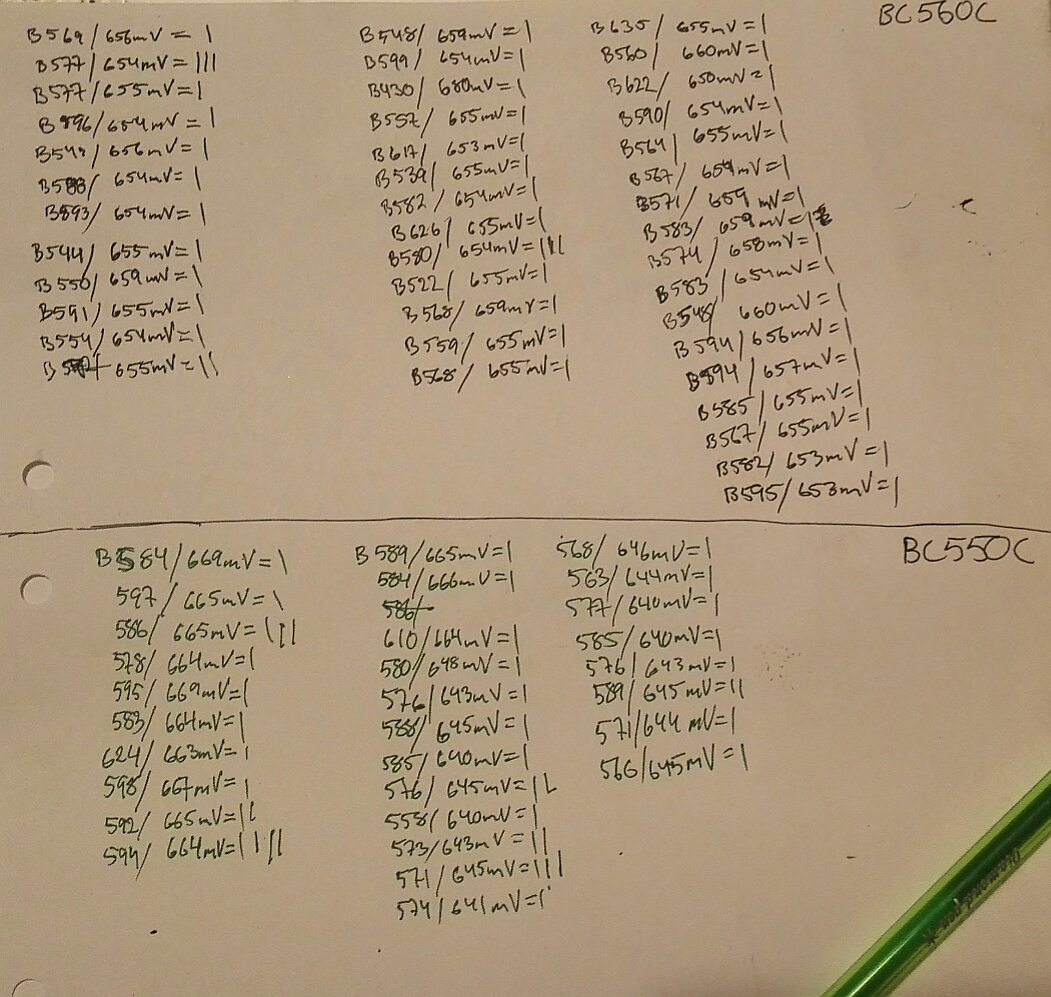 BC560C
B569/656mV = I
B577/654mV = III
B577/655mV = I
B596/654mV = I
B549/656mV = I
B588/654mV = I
B593/654mV = I
B544/655mV = I
B550/659mV = I
B591/655mV = I
B554/654mV = I
655mV = II
B548/659mV = I
B599/654mV = I
B430/680mV = I
B557/655mV = I
B617/653mV = I
B539/655mV = I
B582/654mV = I
B626/655mV = I
B580/654mV = III
B522/655mV = I
B568/659mV = I
B559/655mV = I
B568/655mV = I
B635/655mV = I
B560/660mV = I
B622/650mV = I
B590/654mV = I
B564/655mV = I
B567/659mV = I
B571/659mV = I
B583/659mV = I
B574/658mV = I
B583/654mV = I
B548/660mV = I
B594/656mV = I
B594/657mV = I
B585/655mV = I
B567/655mV = I
B582/653mV = I
B595/653mV = I
BC550C
B584/669mV = I
597/665mV = I
586/665mV = III
578/664mV = I
595/669mV = I
583/664mV = I
624/663mV = I
598/667mV = I
592/665mV = II
594/664mV = IIII
B589/665mV = I
584/666mV = I
586/
610/664mV = I
580/648mV = I
576/643mV = I
588/645mV = I
585/640mV = I
576/645mV = II
558/640mV = I
573/643mV = II
571/645mV = III
574/641mV = I
568/646mV = I
563/644mV = I
577/640mV = I
585/640mV = I
576/643mV = I
589/645mV = II
571/644mV = I
566/645mV = I